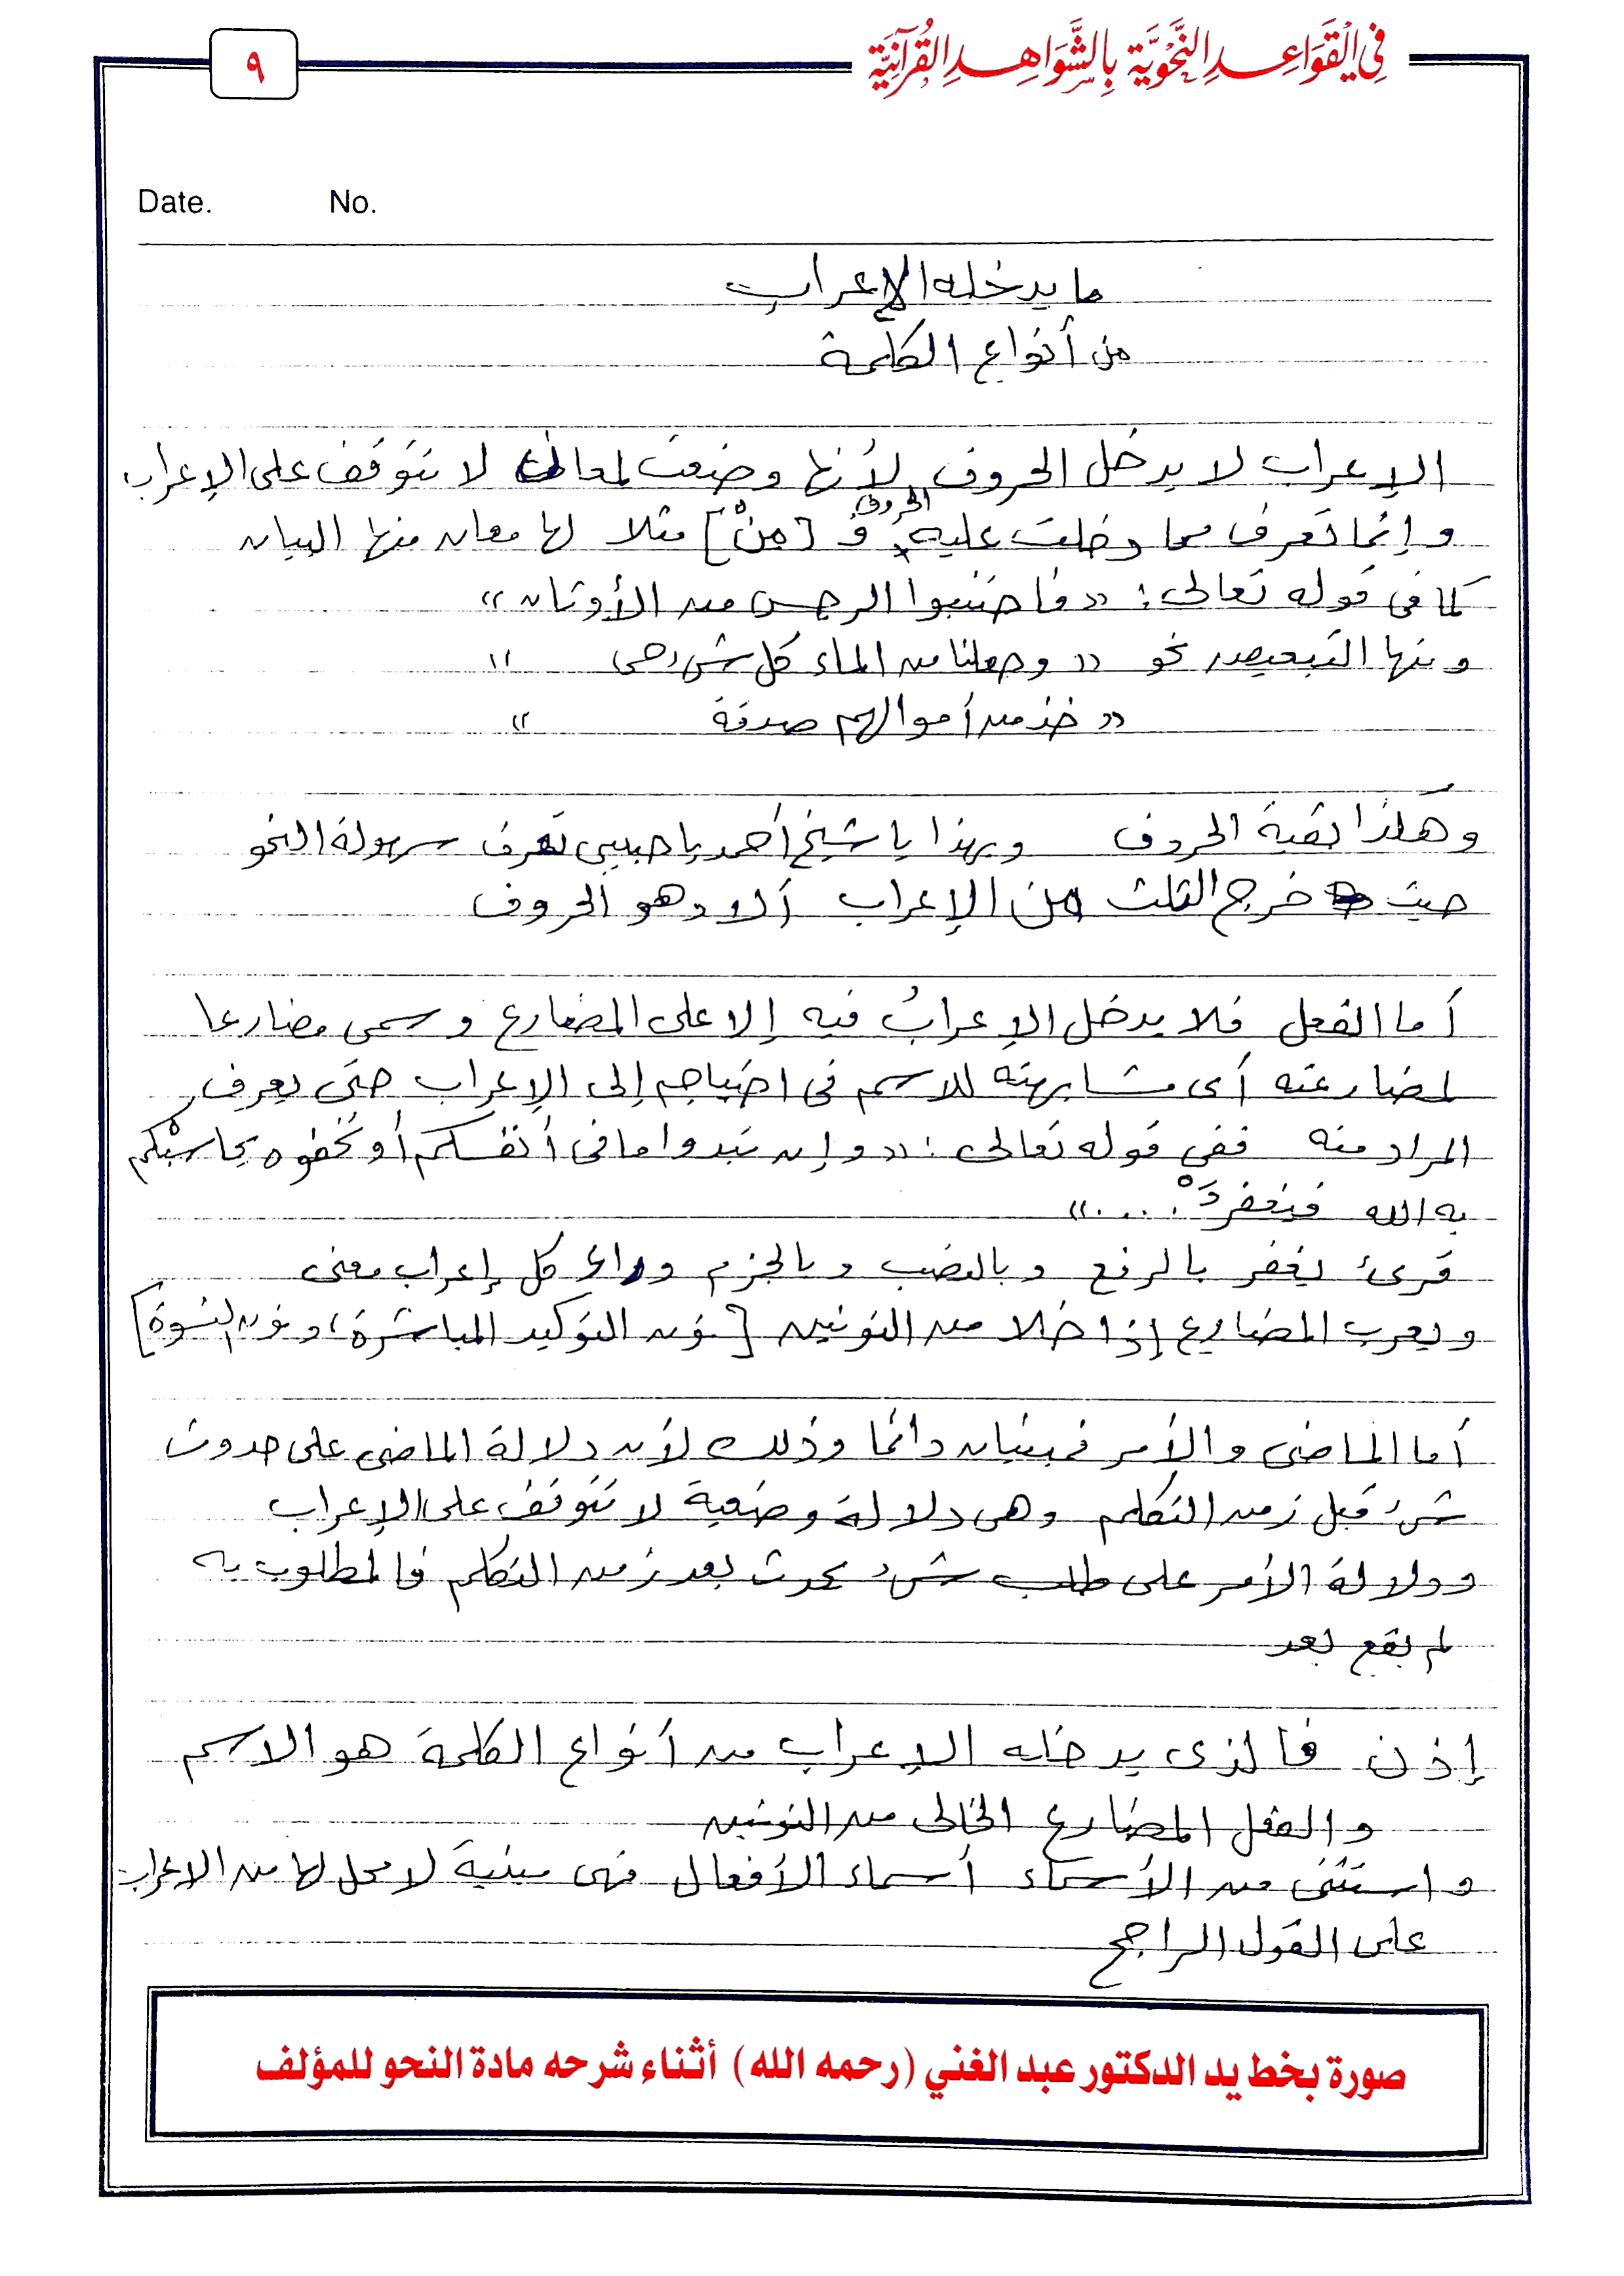 في القَوَاعِدِ النَّحْوِيَّة بِالشَّوَاهِدِ القُرآنيَّة
٩
Date. No.
ما يدخله الإعراب
من أنواع الكلمة
الإعراب لا يدخل الحروف لأنها وضعت لمعان لا تتوقف على الإعراب
وإنما تعرف مما دخلت عليه الحروف فـ [مِنْ] مثلا لها معان منها البيان
كما في قوله تعالى: « فاجتنبوا الرجس من الأوثان »
ومنها التبعيض نحو « وجعلنا من الماء كل شيء حي »
« خذ من أموالهم صدقة »
وهكذا بقية الحروف وبهذا يا شيخ أحمد يا حبيبي تعرف سهولة النحو
حيث خرج الثلث من الإعراب ألا وهو الحروف
أما الفعل فلا يدخل الإعرابُ فيه إلا على المضارع وسمى مضارعا
لمضارعته أى مشابهته للاسم فى احتياجه إلى الإعراب حتى يعرف
المراد منه ففي قوله تعالى: « وإن تبدوا ما فى أنفسكم أو تخفوه يحاسبْكم
به الله فيغفر ....»
قرئ يغفر بالرفع وبالنصب وبالجزم ووراء كل إعراب معنى
ويعرب المضارع إذا خلا من النونين [نون التوكيد المباشرة، ونون النسوة]
أما الماضى والأمر فمبنيان دائما وذلك لأن دلالة الماضى على حدوث
شئ قبل زمن التكلم وهى دلالة وضعية لا تتوقف على الإعراب
ودلالة الأمر على طلب شئ يحدث بعد زمن التكلم فالمطلوب به
لم يقع بعد
إذن فالذى يدخله الإعراب من أنواع الكلمة هو الاسم
والفعل المضارع الخالى من النونين
واستثنى من الأسماء أسماء الأفعال فهى مبنية لا محل لها من الإعراب
على القول الراجح
صورة بخط يد الدكتور عبد الغني (رحمه الله) أثناء شرحه مادة النحو للمؤلف